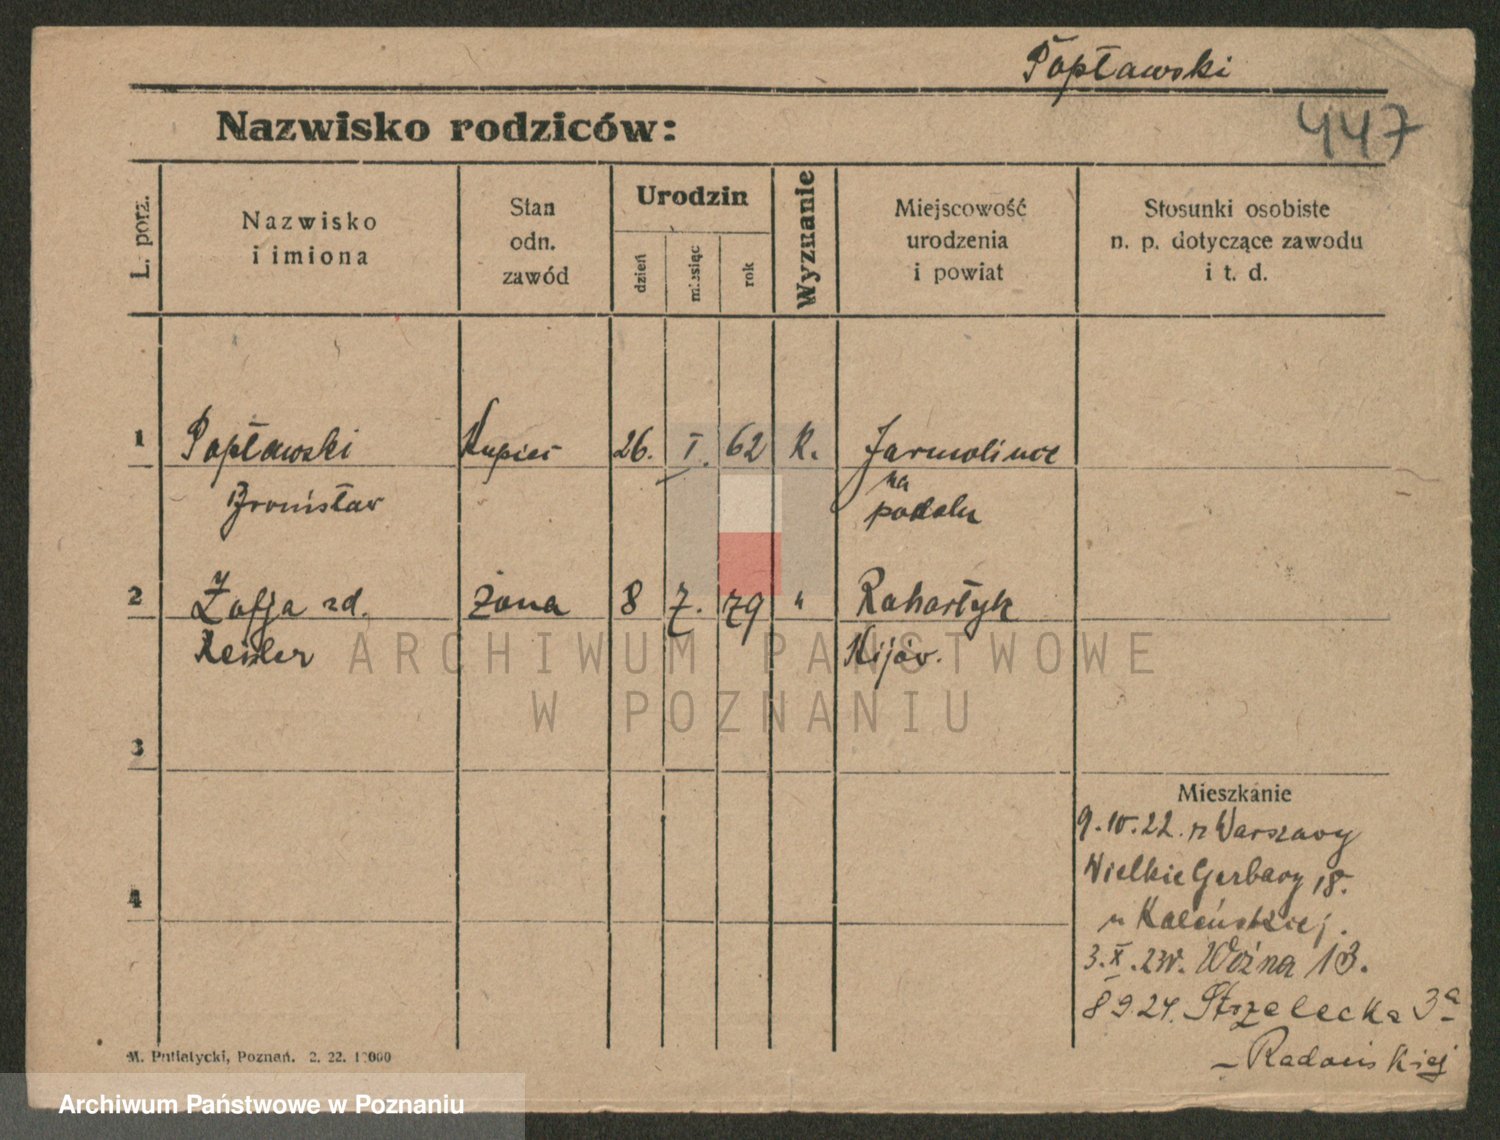 Popławski
447
Nazwisko rodziców:
L. porz.
Nazwisko
i imiona
Stan
odn.
zawód
Urodzin
dzień
miesiąc
rok
Wyznanie
Miejscowość
urodzenia
i powiat
Stosunki osobiste
n. p. dotyczące zawodu
i t. d.
1 Popławski Kupiec 26. I. 62 K. Jarmolince
Bronisław na
podolu
2 Zofja zd. żona 8 7. 79 "
Kijów.
3
4
Mieszkanie
9.10.22. z Warszawy
Wielkie Garbary 18.
u
3.X.23r. Woźna 13.
8 9.24. Strzelecka 3a
M. Putiatycki, Poznań. 2. 22. 10000
ARCHIWUM PAŃSTWOWE
W POZNANIU
Archiwum Państwowe w Poznaniu